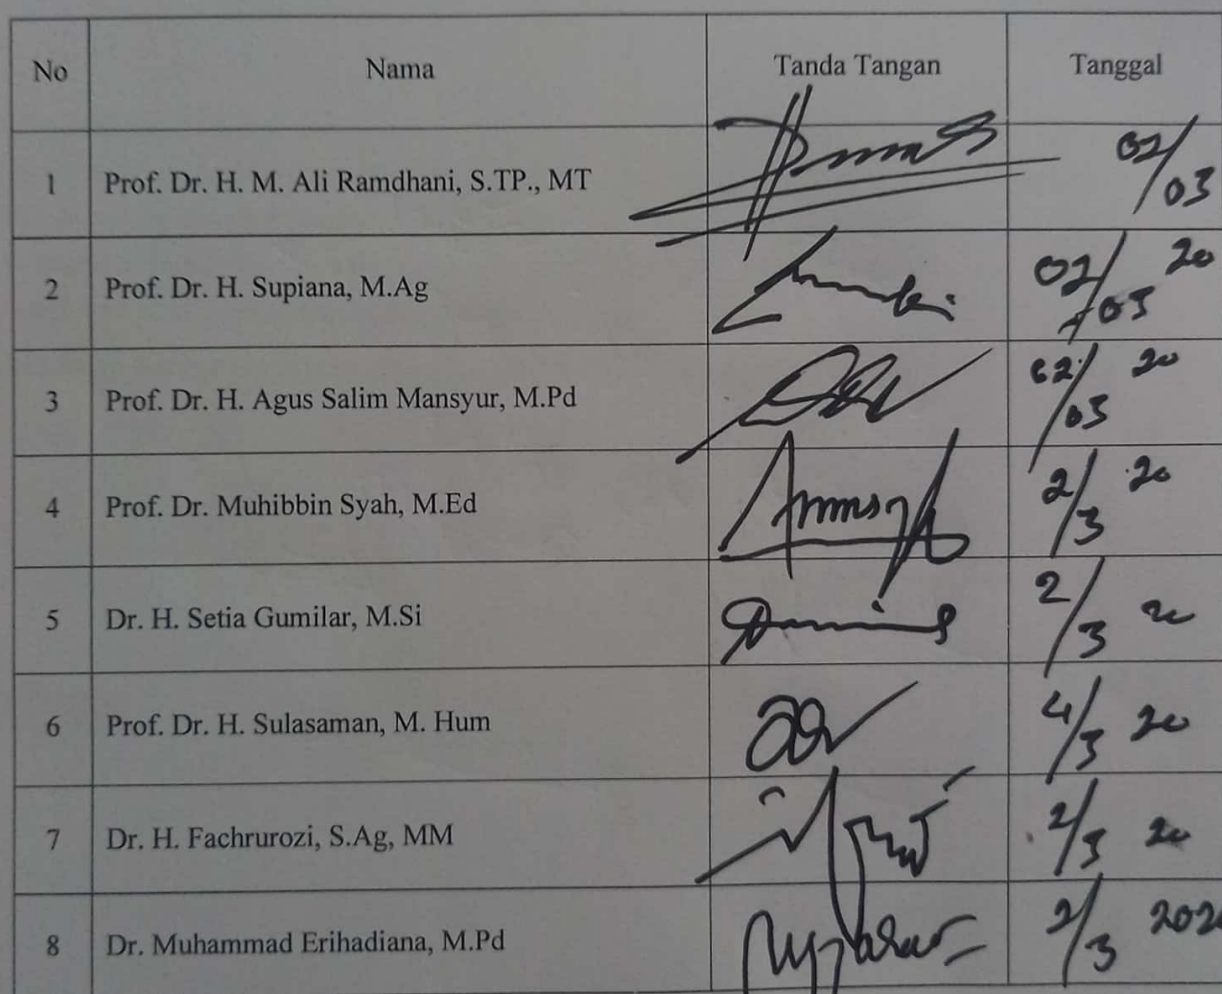 No Nama Tanda Tangan Tanggal
1 Prof. Dr. H. M. Ali Ramdhani, S.TP., MT 02/03
2 Prof. Dr. H. Supiana, M.Ag 02/03 20
3 Prof. Dr. H. Agus Salim Mansyur, M.Pd 02/03 20
4 Prof. Dr. Muhibbin Syah, M.Ed 2/3 20
5 Dr. H. Setia Gumilar, M.Si 2/3 20
6 Prof. Dr. H. Sulasaman, M. Hum 4/3 20
7 Dr. H. Fachrurozi, S.Ag, MM 2/3 20
8 Dr. Muhammad Erihadiana, M.Pd 2/3 2020